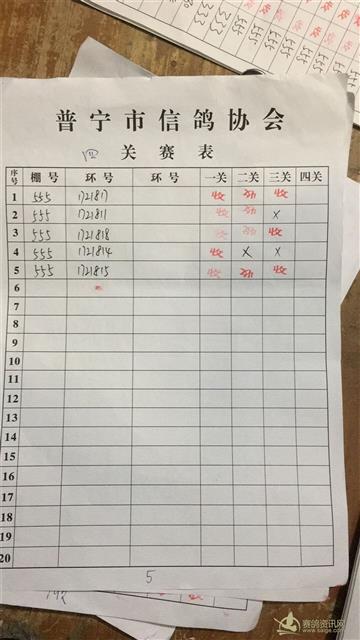 普宁市信鸽协会
四 关赛表
序号 棚号 环号 环号 一关 二关 三关 四关
1 555 1721817 收 收
2 555 1721811 收 X
3 555 1721818 收 收
4 555 1721814 收 X X
5 555 1721815 收 收
6
7
8
9
10
11
12
13
14
15
16
17
18
19
20
5
赛鸽资讯网
www.saige.com